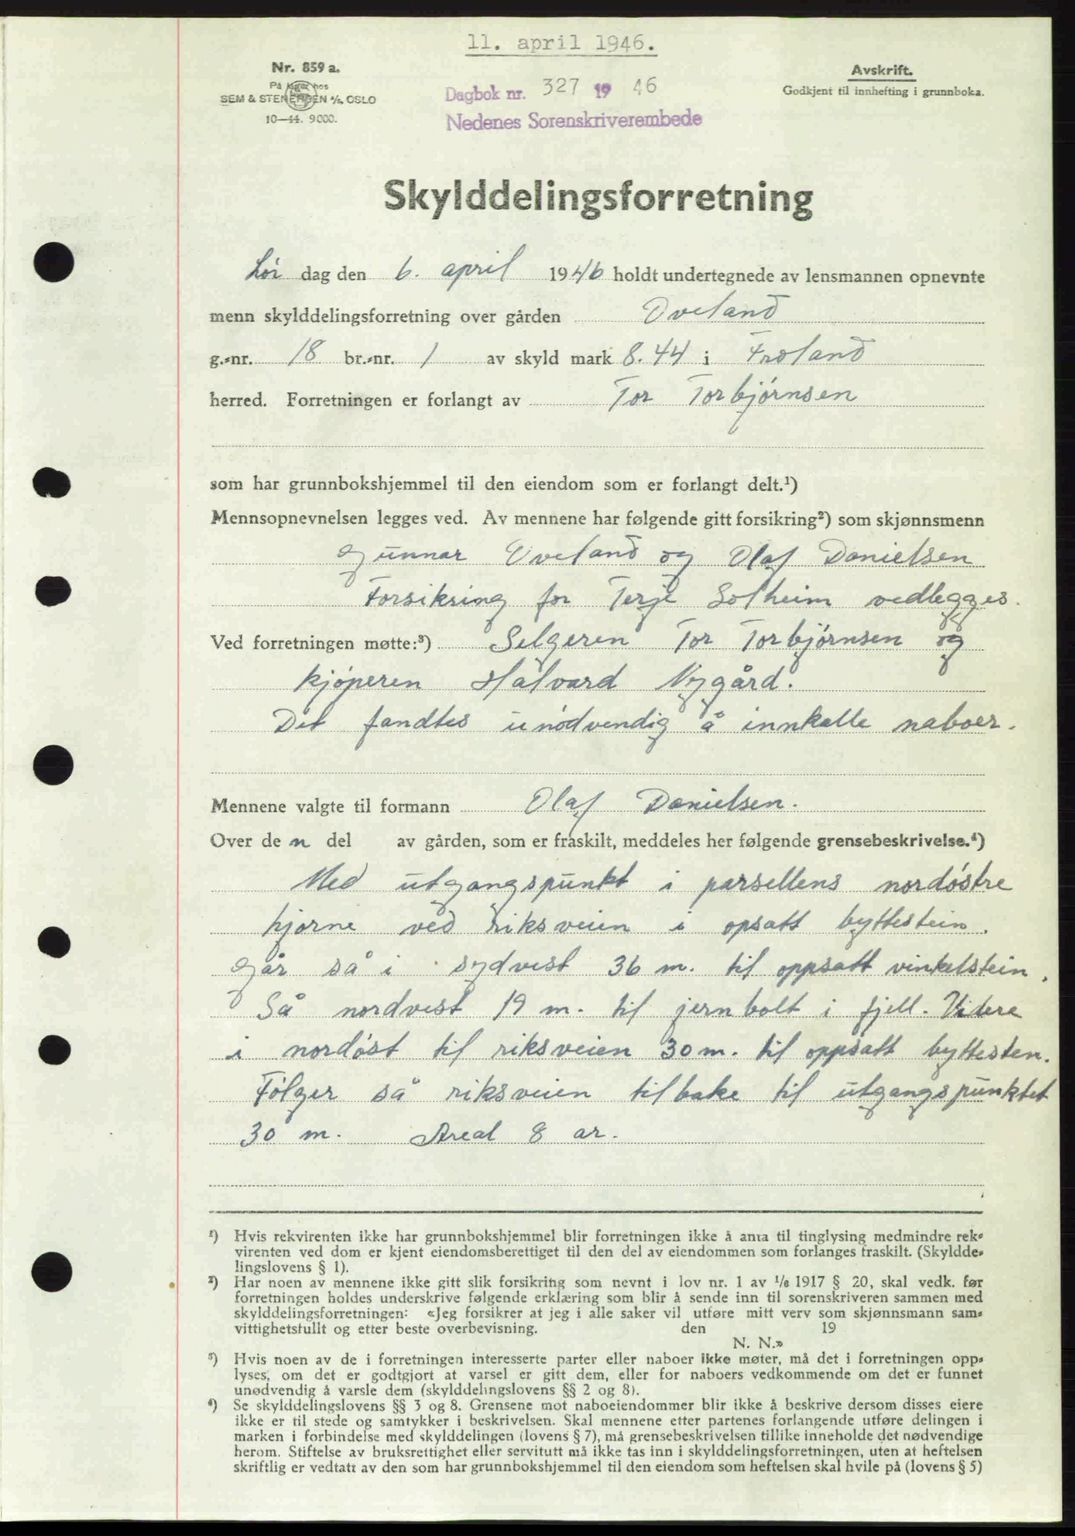 11. april 1946.
Nr. 859 a.
På lager hos
SEM & STENERSEN A/S, OSLO
10—44. 9000.
Dagbok nr. 327 19 46
Nedenes Sorenskriverembede
Avskrift.
Godkjent til innhefting i grunnboka.
Skylddelingsforretning
Lør dag den 6. april 1946 holdt undertegnede av lensmannen opnevnte
menn skylddelingsforretning over gården Oveland
g.-nr. 18 br.-nr. 1 av skyld mark 8.44 i Froland
herred. Forretningen er forlangt av Tor Torbjørnsen
som har grunnbokshjemmel til den eiendom som er forlangt delt.¹)
Mennsopnevnelsen legges ved. Av mennene har følgende gitt forsikring²) som skjønnsmenn
Gunnar Oveland og Olaf Danielsen
Forsikring for Terje Solheim vedlegges.
Ved forretningen møtte:³) Selgeren Tor Torbjørnsen og
kjøperen Halvard Nygård.
Det fandtes unødvendig å innkalle naboer.
Mennene valgte til formann Olaf Danielsen.
Over de n del av gården, som er fraskilt, meddeles her følgende grensebeskrivelse.⁴)
Med utgangspunkt i parsellens nordøstre
hjørne ved riksveien i opsatt byttestein.
Går så i sydvest 36 m. til oppsatt vinkelstein.
Så nordvest 19 m. til jernbolt i fjell. Videre
i nordøst til riksveien 30 m. til oppsatt byttesten.
Følger så riksveien tilbake til utgangspunktet
30 m. Areal 8 ar.
¹) Hvis rekvirenten ikke har grunnbokshjemmel blir forretningen ikke å anta til tinglysing medmindre rek-
virenten ved dom er kjent eiendomsberettiget til den del av eiendommen som forlanges fraskilt. (Skyldde-
lingslovens § 1).
²) Har noen av mennene ikke gitt slik forsikring som nevnt i lov nr. 1 av 1/8 1917 § 20, skal vedk. før
forretningen holdes underskrive følgende erklæring som blir å sende inn til sorenskriveren sammen med
skylddelingsforretningen: «Jeg forsikrer at jeg i alle saker vil utføre mitt verv som skjønnsmann sam-
vittighetsfullt og etter beste overbevisning. den 19
N. N.»
³) Hvis noen av de i forretningen interesserte parter eller naboer ikke møter, må det i forretningen opp-
lyses, om det er godtgjort at varsel er gitt dem, eller for naboers vedkommende om det er funnet
unødvendig å varsle dem (skylddelingslovens §§ 2 og 8).
⁴) Se skylddelingslovens §§ 3 og 8. Grensene mot naboeiendommer blir ikke å beskrive dersom disses eiere
ikke er til stede og samtykker i beskrivelsen. Skal mennene etter partenes forlangende utføre delingen i
marken i forbindelse med skylddelingen (lovens § 7), må grensebeskrivelsen tillike inneholde det nødvendige
herom. Stiftelse av bruksrettighet eller servitutt må ikke tas inn i skylddelingsforretningen, uten at heftelsen
skriftlig er vedtatt av den som har grunnbokshjemmel til den eiendom som heftelsen skal hvile på (lovens § 5)